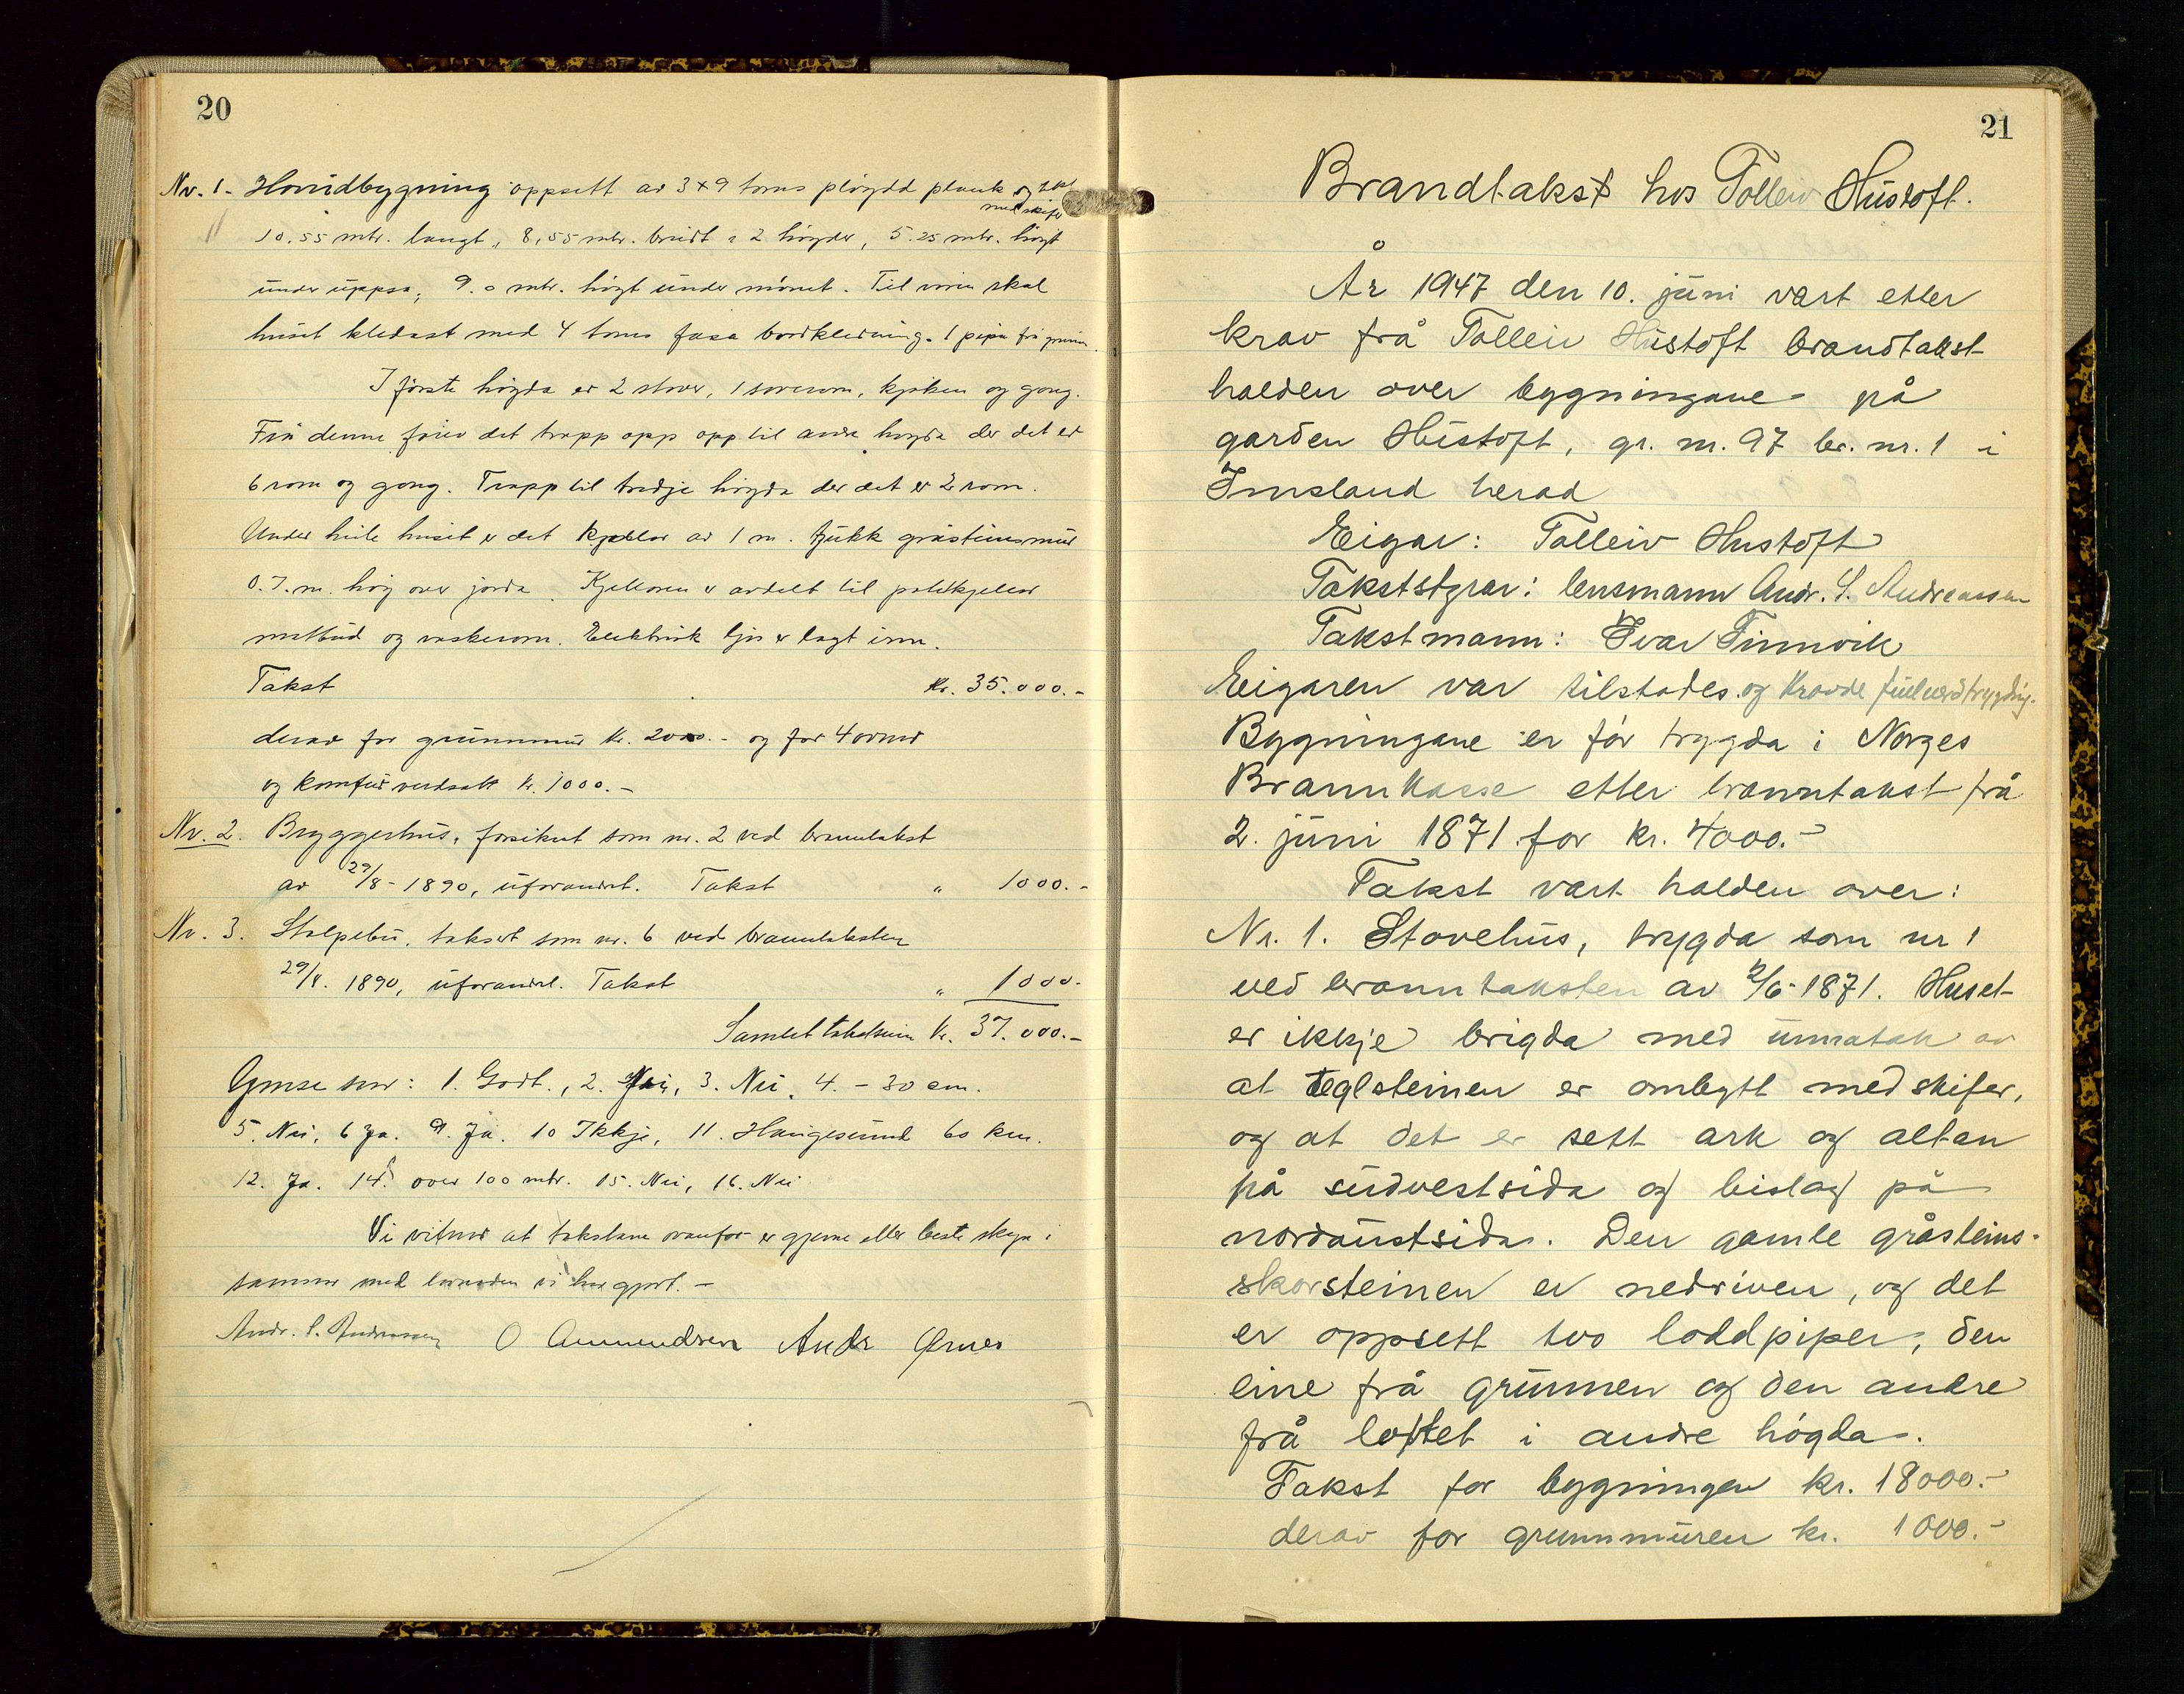 20
Nr. 1. Hovudbygning oppsett av 3×9 toms pløygd plank og tekt
med skifer
10.55 mtr. langt, 8,55 mtr. breidt i 2 høgder, 5.25 mtr. høgt
under uppsa, 9.0 mtr. høgt under mønet. Til våren skal
huset kledast med 4 toms fasa bordkledning. 1 pipa frå grunn.
I første høgda er 2 stover, 1 soverom, kjøken og gong.
Frå denne fører det trapp opp opp til andre høgda der det er
6 rom og gong. Trapp til tredje høgda der det er 2 rom.
Under heile huset er det kjellar av 1 m. tjukk gråsteinsmur
0.7. m. høg over jorda. Kjellaren er avdelt til potetkjellar
matbud og vaskerom. Elektrisk ljos er lagt inn.
Takst kr. 35.000.-
derav for grunnmur kr. 2000.- og for 4 omnar
og komfur verdsatt kr. 1000.-
Nr. 2. Bryggerhus, forsikret som nr. 2 ved branntakst
av 29/8-1890, uforandret. Takst " 1000.-
Nr. 3. Stolpebu, taksert som nr. 6 ved branntaksten
29/8. 1890, uforandret. Takst " 1000.-
Samlet takstsum kr. 37.000.-
Ymse svar: 1. Godt., 2. Nei, 3. Nei, 4. - 30 cm.
5. Nei, 6 Ja. 9. Ja. 10 Ikkje, 11. Haugesund 60 km.
12. Ja. 14. over 100 mtr. 15. Nei, 16. Nei
Vi vitnar at takstane ovanfor er gjevne etter beste skyn i
samsvar med lovnaden vi har gjort. -
Andr. S. Andreassen O Ammundsen Andr Ørnes
21
Brandtakst hos Tolleiv Hustoft.
År 1947 den 10. juni vart etter
krav frå Tolleiv Hustoft brandtakst
halden over bygningane på
garden Hustoft, gr. nr. 97 br. nr. 1 i
Imsland herad
Eigar: Tolleiv Hustoft
Takststyrar: lensmann Andr. S. Andreassen
Takstmann: Ivar Finnvik
Eigaren var tilstades og kravde fullverdtrygding.
Bygningane er før trygda i Norges
Brannkasse etter branntakst frå
2. juni 1871 for kr. 4000.-
Takst vart halden over:
Nr. 1. Stovehus, trygda som nr 1
ved branntaksten av 2/6-1871. Huset
er ikkje brigda med unnatak av
at teglsteinen er ombytt med skifer,
og at det er sett ark og altan
på sudvestsida og bislag på
nordaustsida. Den gamle gråsteins-
skorsteinen er nedriven, og det
er oppsett tvo loddpiper, den
eine frå grunnen og den andre
frå loftet i andre høgda.
Takst for bygningen kr. 18000.-
derav for grunnmuren kr. 1000.-